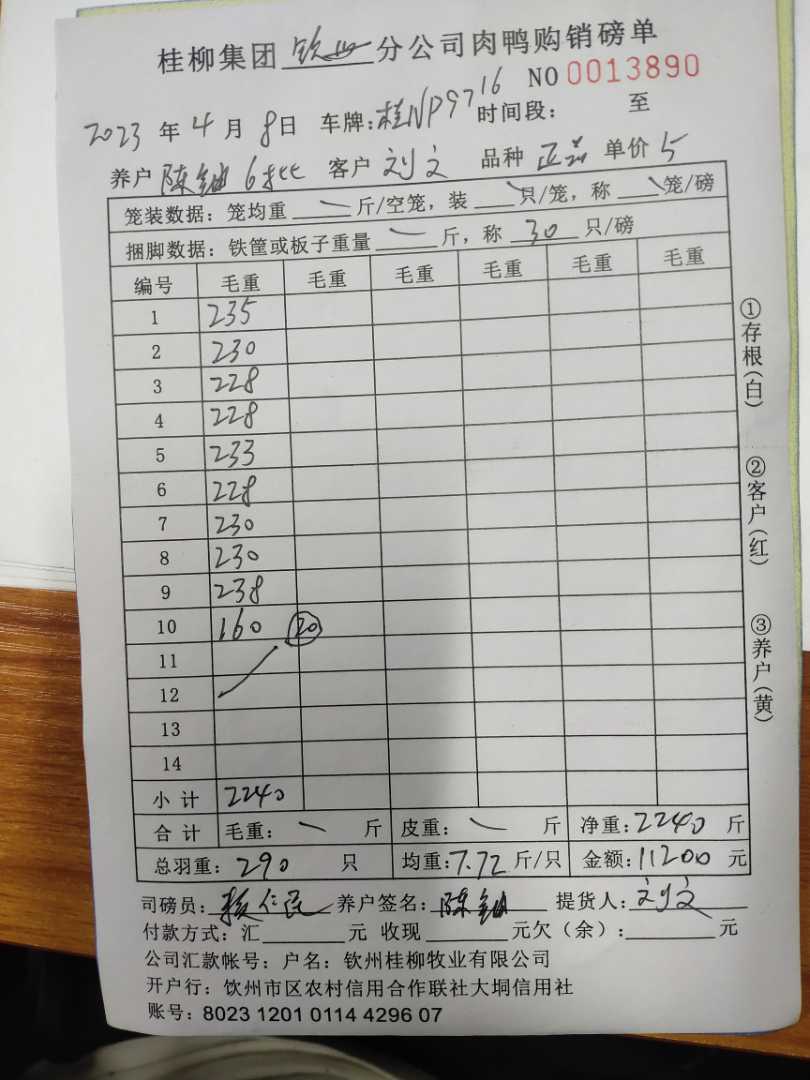 桂柳集团 钦州 分公司肉鸭购销磅单
NO 0013890
2023 年 4 月 8 日 车牌:桂NP9716 时间段: 至
养户 陈 6批 客户 刘文 品种 正品 单价 5
笼装数据:笼均重 斤/空笼,装 只/笼,称 笼/磅
捆脚数据:铁筐或板子重量 斤,称 30 只/磅
编号 毛重 毛重 毛重 毛重 毛重 毛重
1 235
2 230
3 228
4 228
5 233
6 228
7 230
8 230
9 238
10 160 20
11
12
13
14
小计 2240
合计 毛重: 斤 皮重: 斤 净重:2240 斤
总羽重:290 只 均重:7.72 斤/只 金额:11200 元
司磅员: 仁民 养户签名:陈 提货人:刘文
付款方式:汇 元 收现 元欠(余): 元
公司汇款帐号:户名:钦州桂柳牧业有限公司
开户行:饮州市区农村信用合作联社大垌信用社
账号:8023 1201 0114 4296 07
①存根(白)
②客户(红)
③养户(黄)